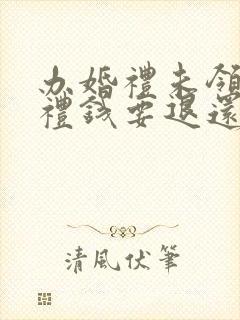 办婚禮未領
禮錢要退還
清風伏筆